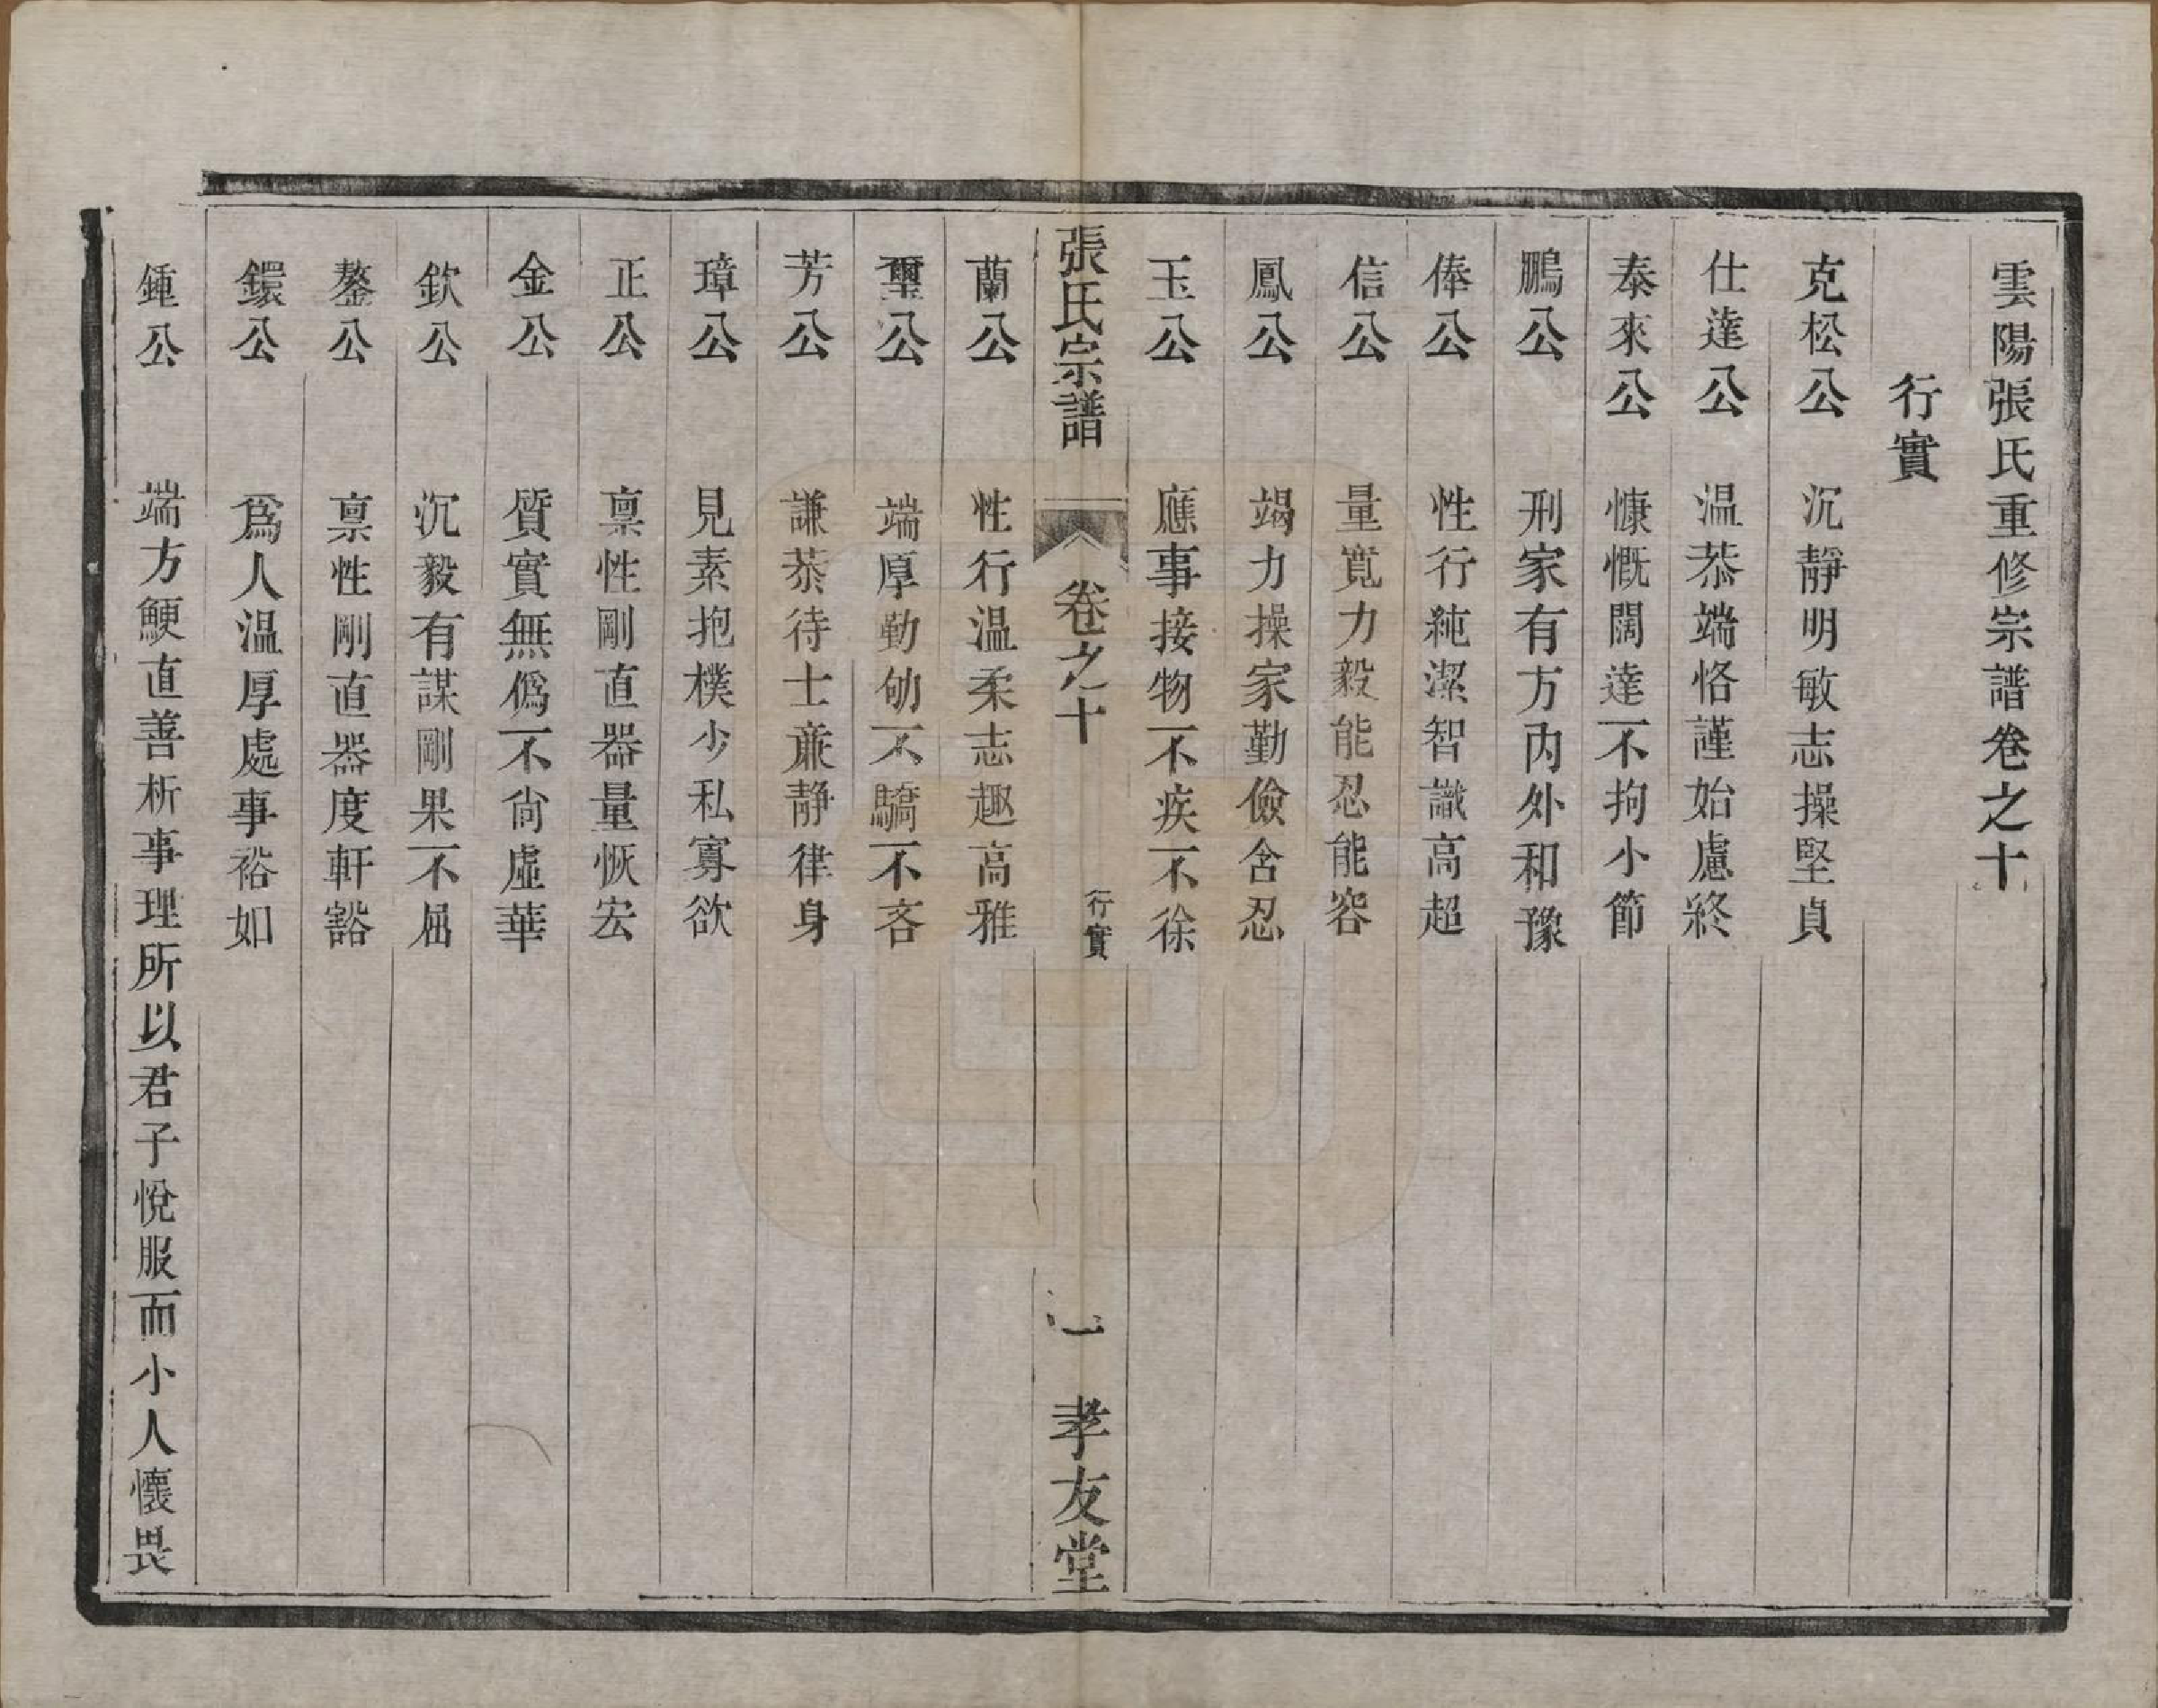 雲陽張氏重修宗譜卷之十
行實
克松公 沉靜明敏志操堅貞
仕達公 温恭端恪謹始慮終
泰來公 慷慨闊達不拘小節
鵬公 刑家有方內外和豫
俸公 性行純潔智識高超
信公 量寬力毅能忍能容
鳳公 竭力操家勤儉含忍
玉公 應事接物不疾不徐
張氏宗譜 卷之十 行實 一 孝友堂
蘭公 性行温柔志趣高雅
璽公 端厚勤劬不驕不吝
芳公 謙恭待士亷静律身
璋公 見素抱樸少私寡欲
正公 禀性剛直器量恢宏
金公 質實無僞不尙虛華
欽公 沉毅有謀剛果不屈
鏊公 禀性剛直器度軒豁
鐶公 爲人温厚處事裕如
鍾公 端方鯁直善析事理所以君子悅服而小人懷畏